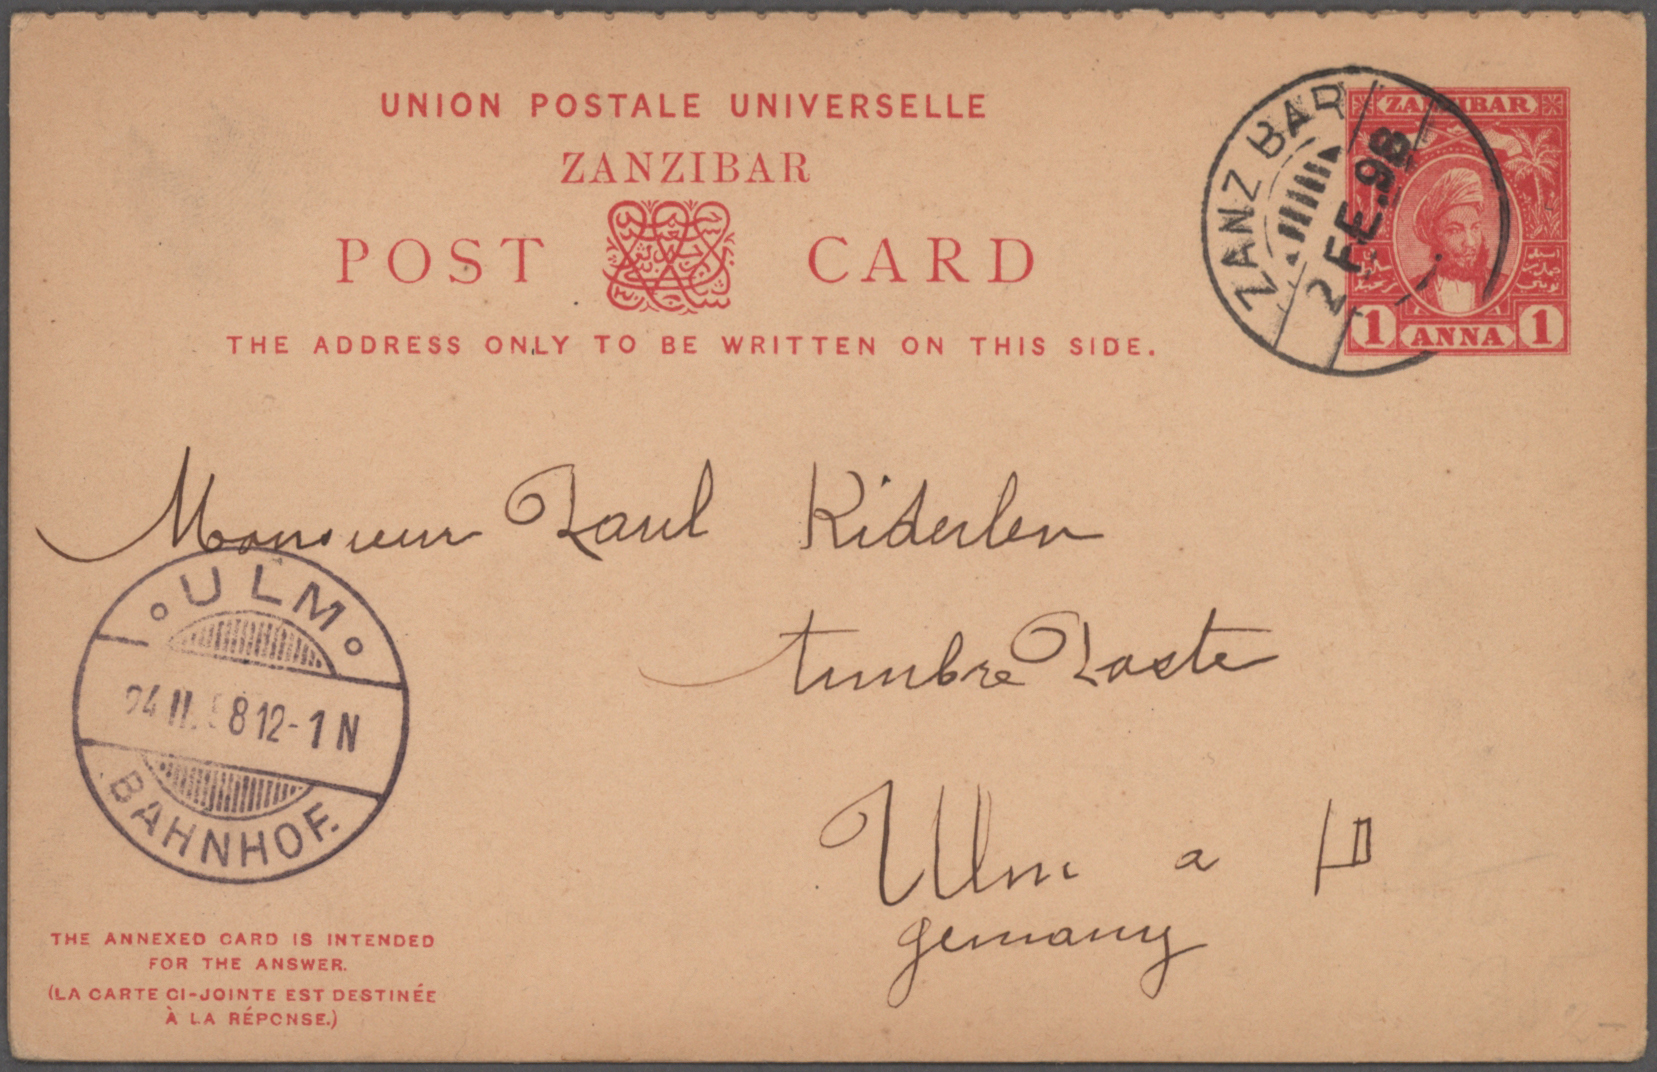 UNION POSTALE UNIVERSELLE
ZANZIBAR
POST CARD
THE ADDRESS ONLY TO BE WRITTEN ON THIS SIDE.
ZANZIBAR
2 FE.98
ZANZIBAR
1 ANNA 1
Monsieur Paul Kiderlen
timbre Poste
Ulm a D
Germany
ULM
24 II. 98 12-1N
BAHNHOF.
THE ANNEXED CARD IS INTENDED
FOR THE ANSWER.
(LA CARTE CI-JOINTE EST DESTINÉE
À LA RÉPONSE.)